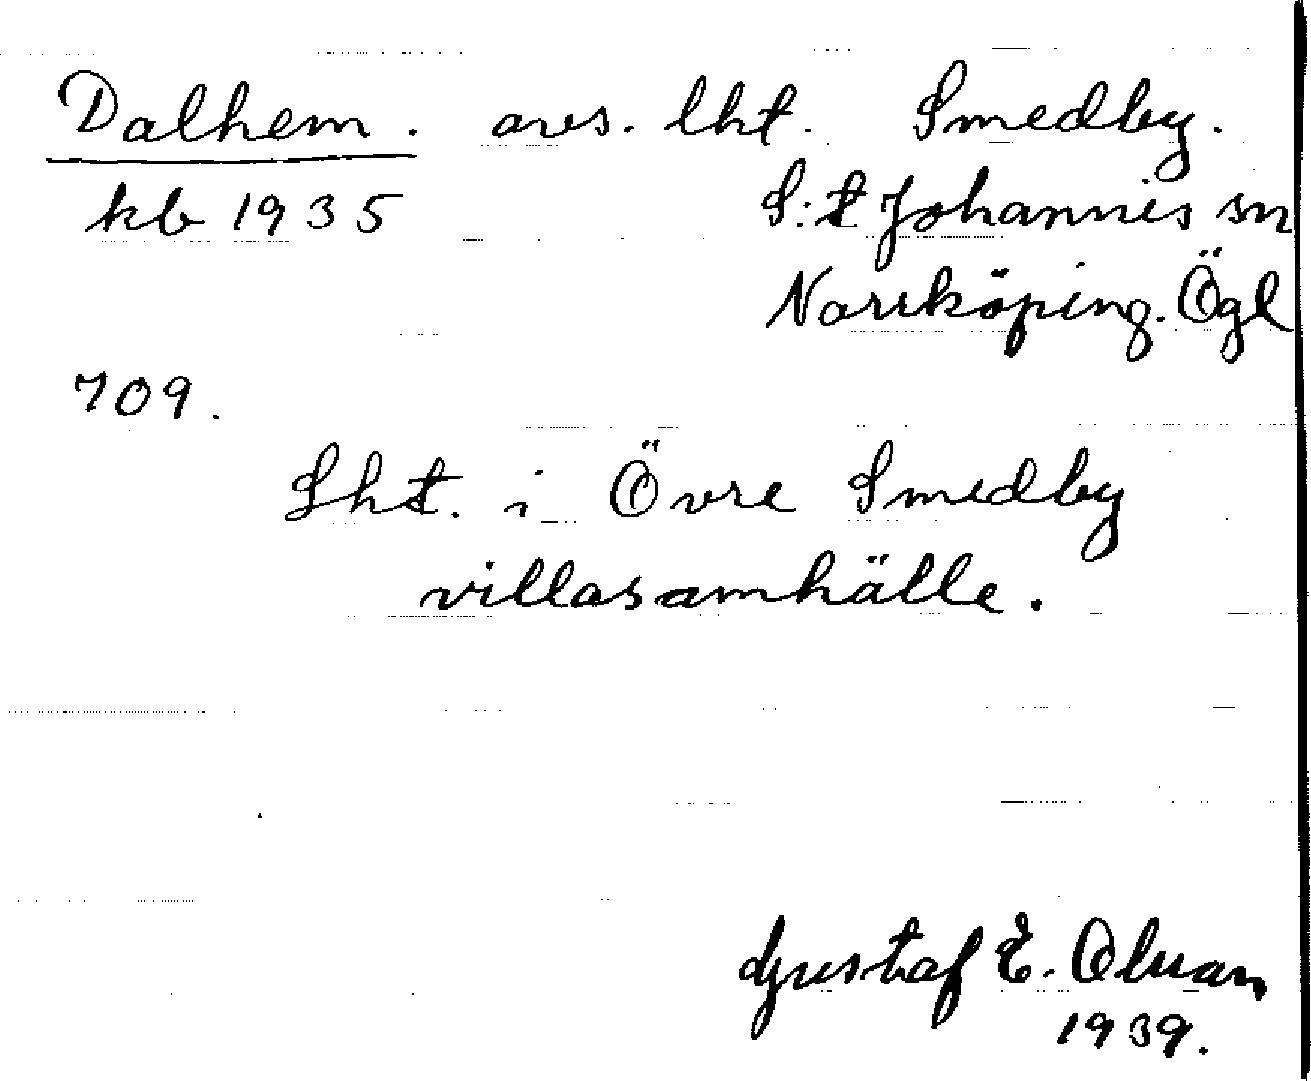 Dalhem. avs. lht. Smedby.
kb 1935 S:t Johannis sn
Norrköping. Ögl
709.
Lht. i Övre Smedby
villasamhälle.
Gustaf E. Olsson
1939.